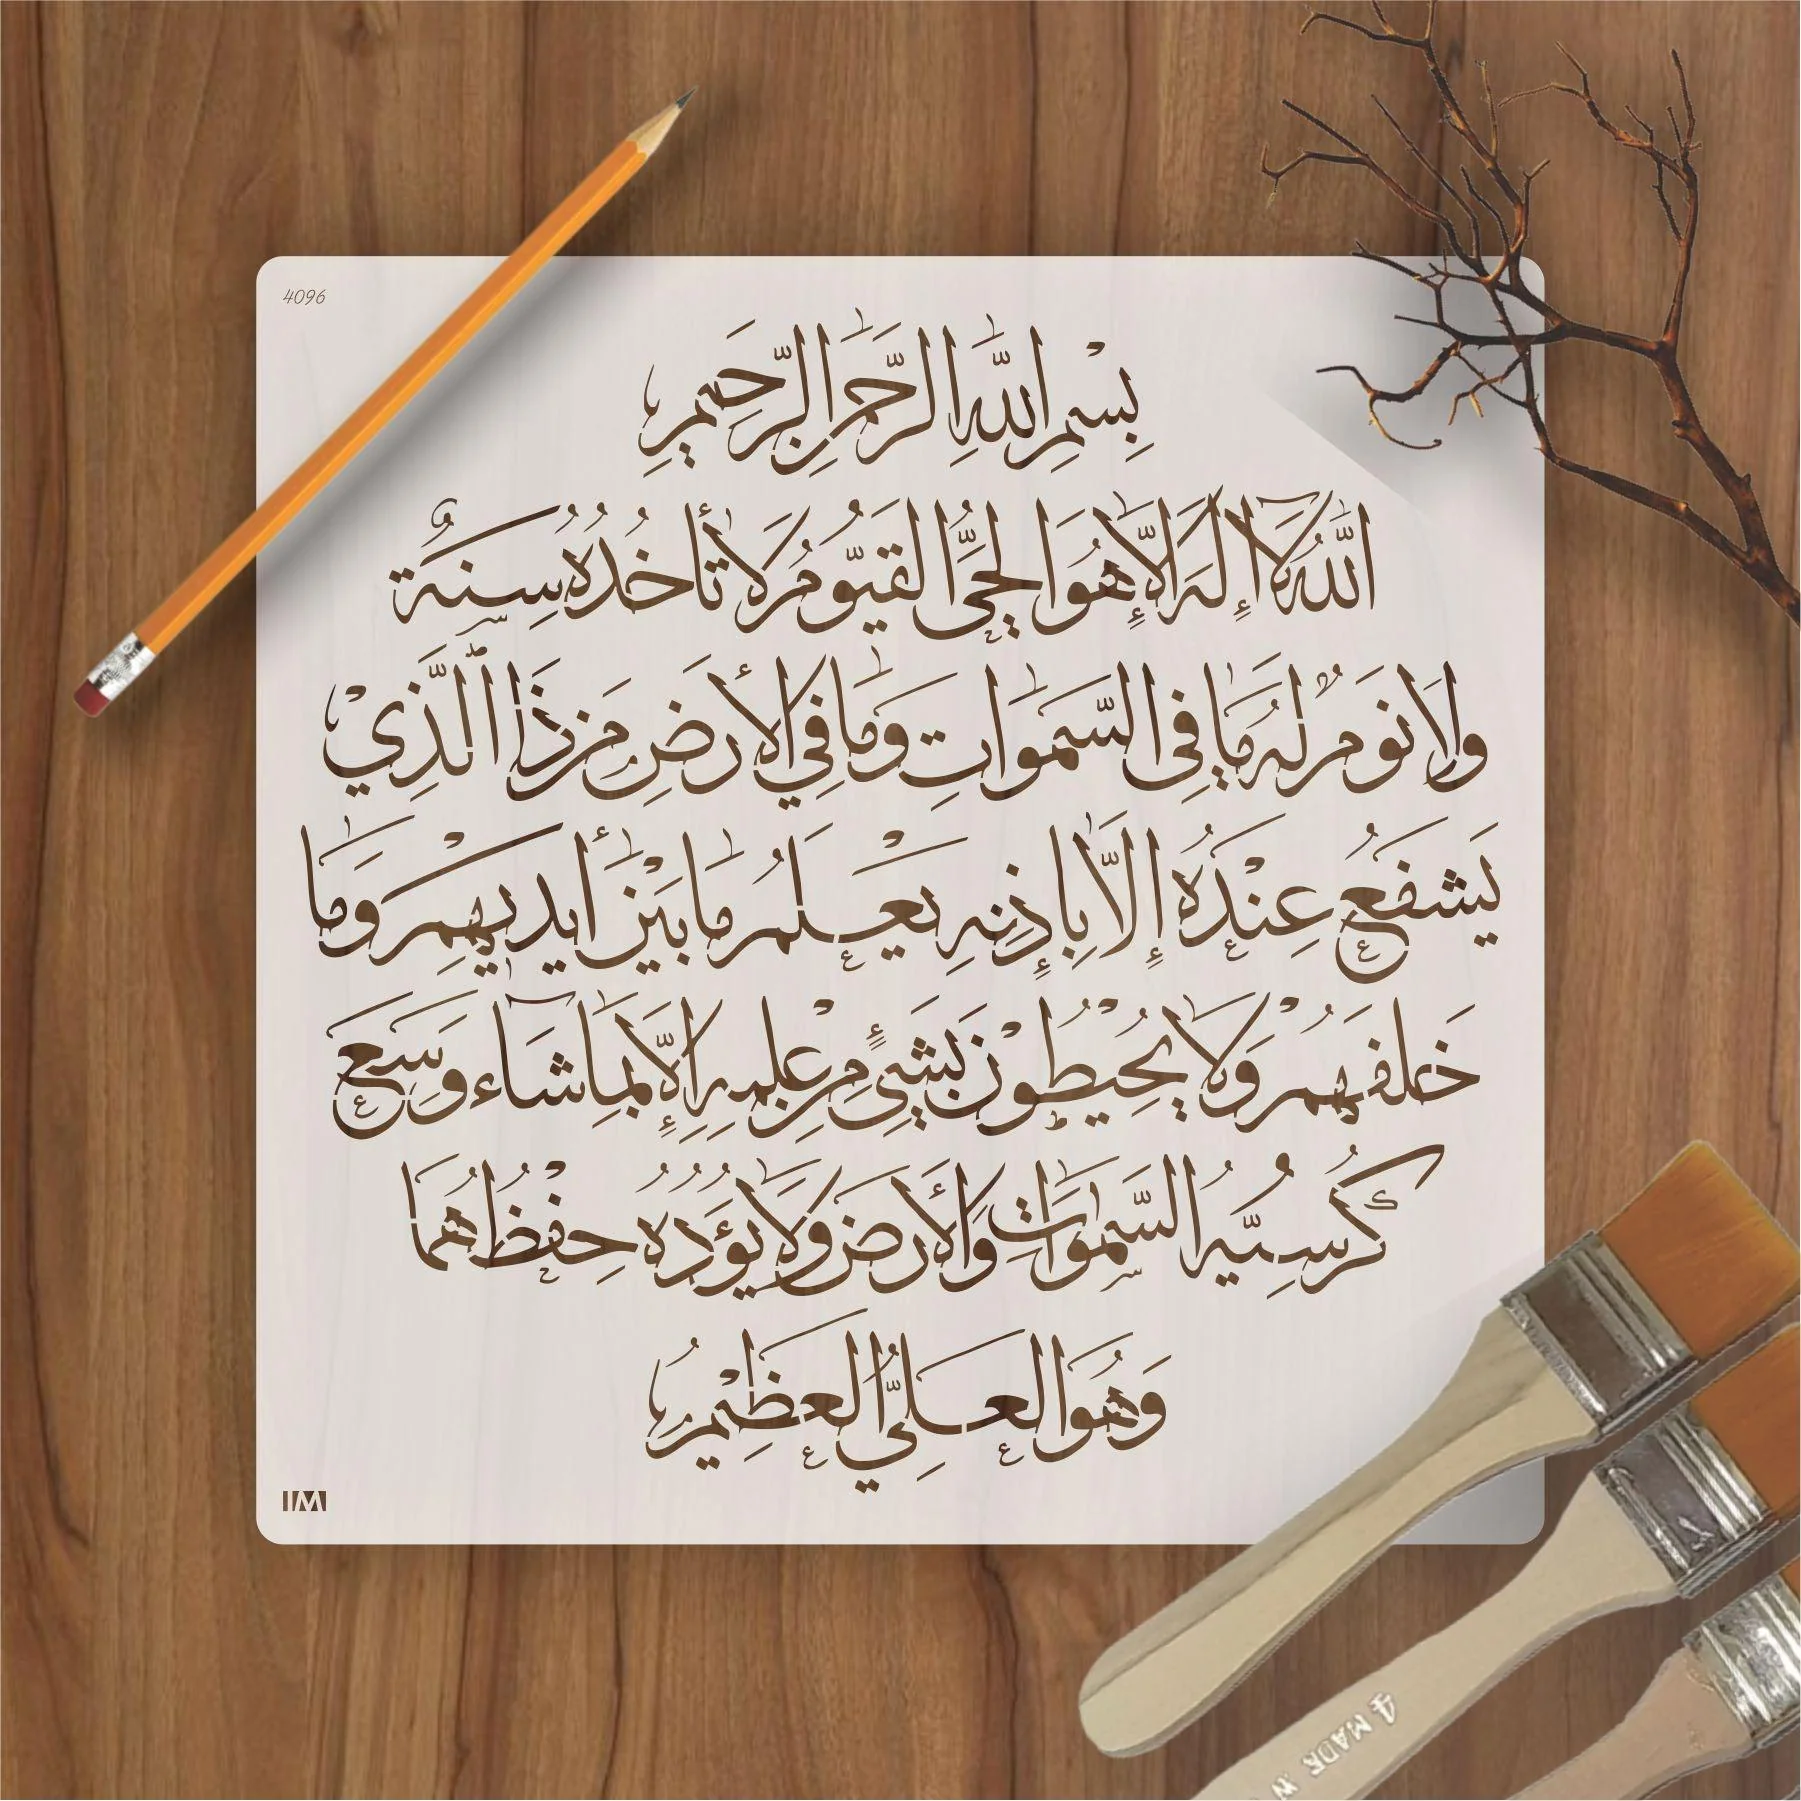 4096
بِسْمِ اللّٰهِ الرَّحْمٰنِ الرَّحِيْمِ
اَللّٰهُ لَآ اِلٰهَ اِلَّا هُوَ الْحَيُّ الْقَيُّوْمُ لَا تَأْخُذُهُ سِنَةٌ
وَلَا نَوْمٌ لَهُ مَا فِي السَّمٰوَاتِ وَمَا فِي الْأَرْضِ مَنْ ذَا الَّذِيْ
يَشْفَعُ عِنْدَهُ إِلَّا بِإِذْنِهِ يَعْلَمُ مَا بَيْنَ أَيْدِيْهِمْ وَمَا
خَلْفَهُمْ وَلَا يُحِيْطُوْنَ بِشَيْءٍ مِنْ عِلْمِهِ إِلَّا بِمَا شَآءَ وَسِعَ
كُرْسِيُّهُ السَّمٰوَاتِ وَالْأَرْضَ وَلَا يَؤُدُهُ حِفْظُهُمَا
وَهُوَ الْعَلِيُّ الْعَظِيْمُ
IM
4 MADE